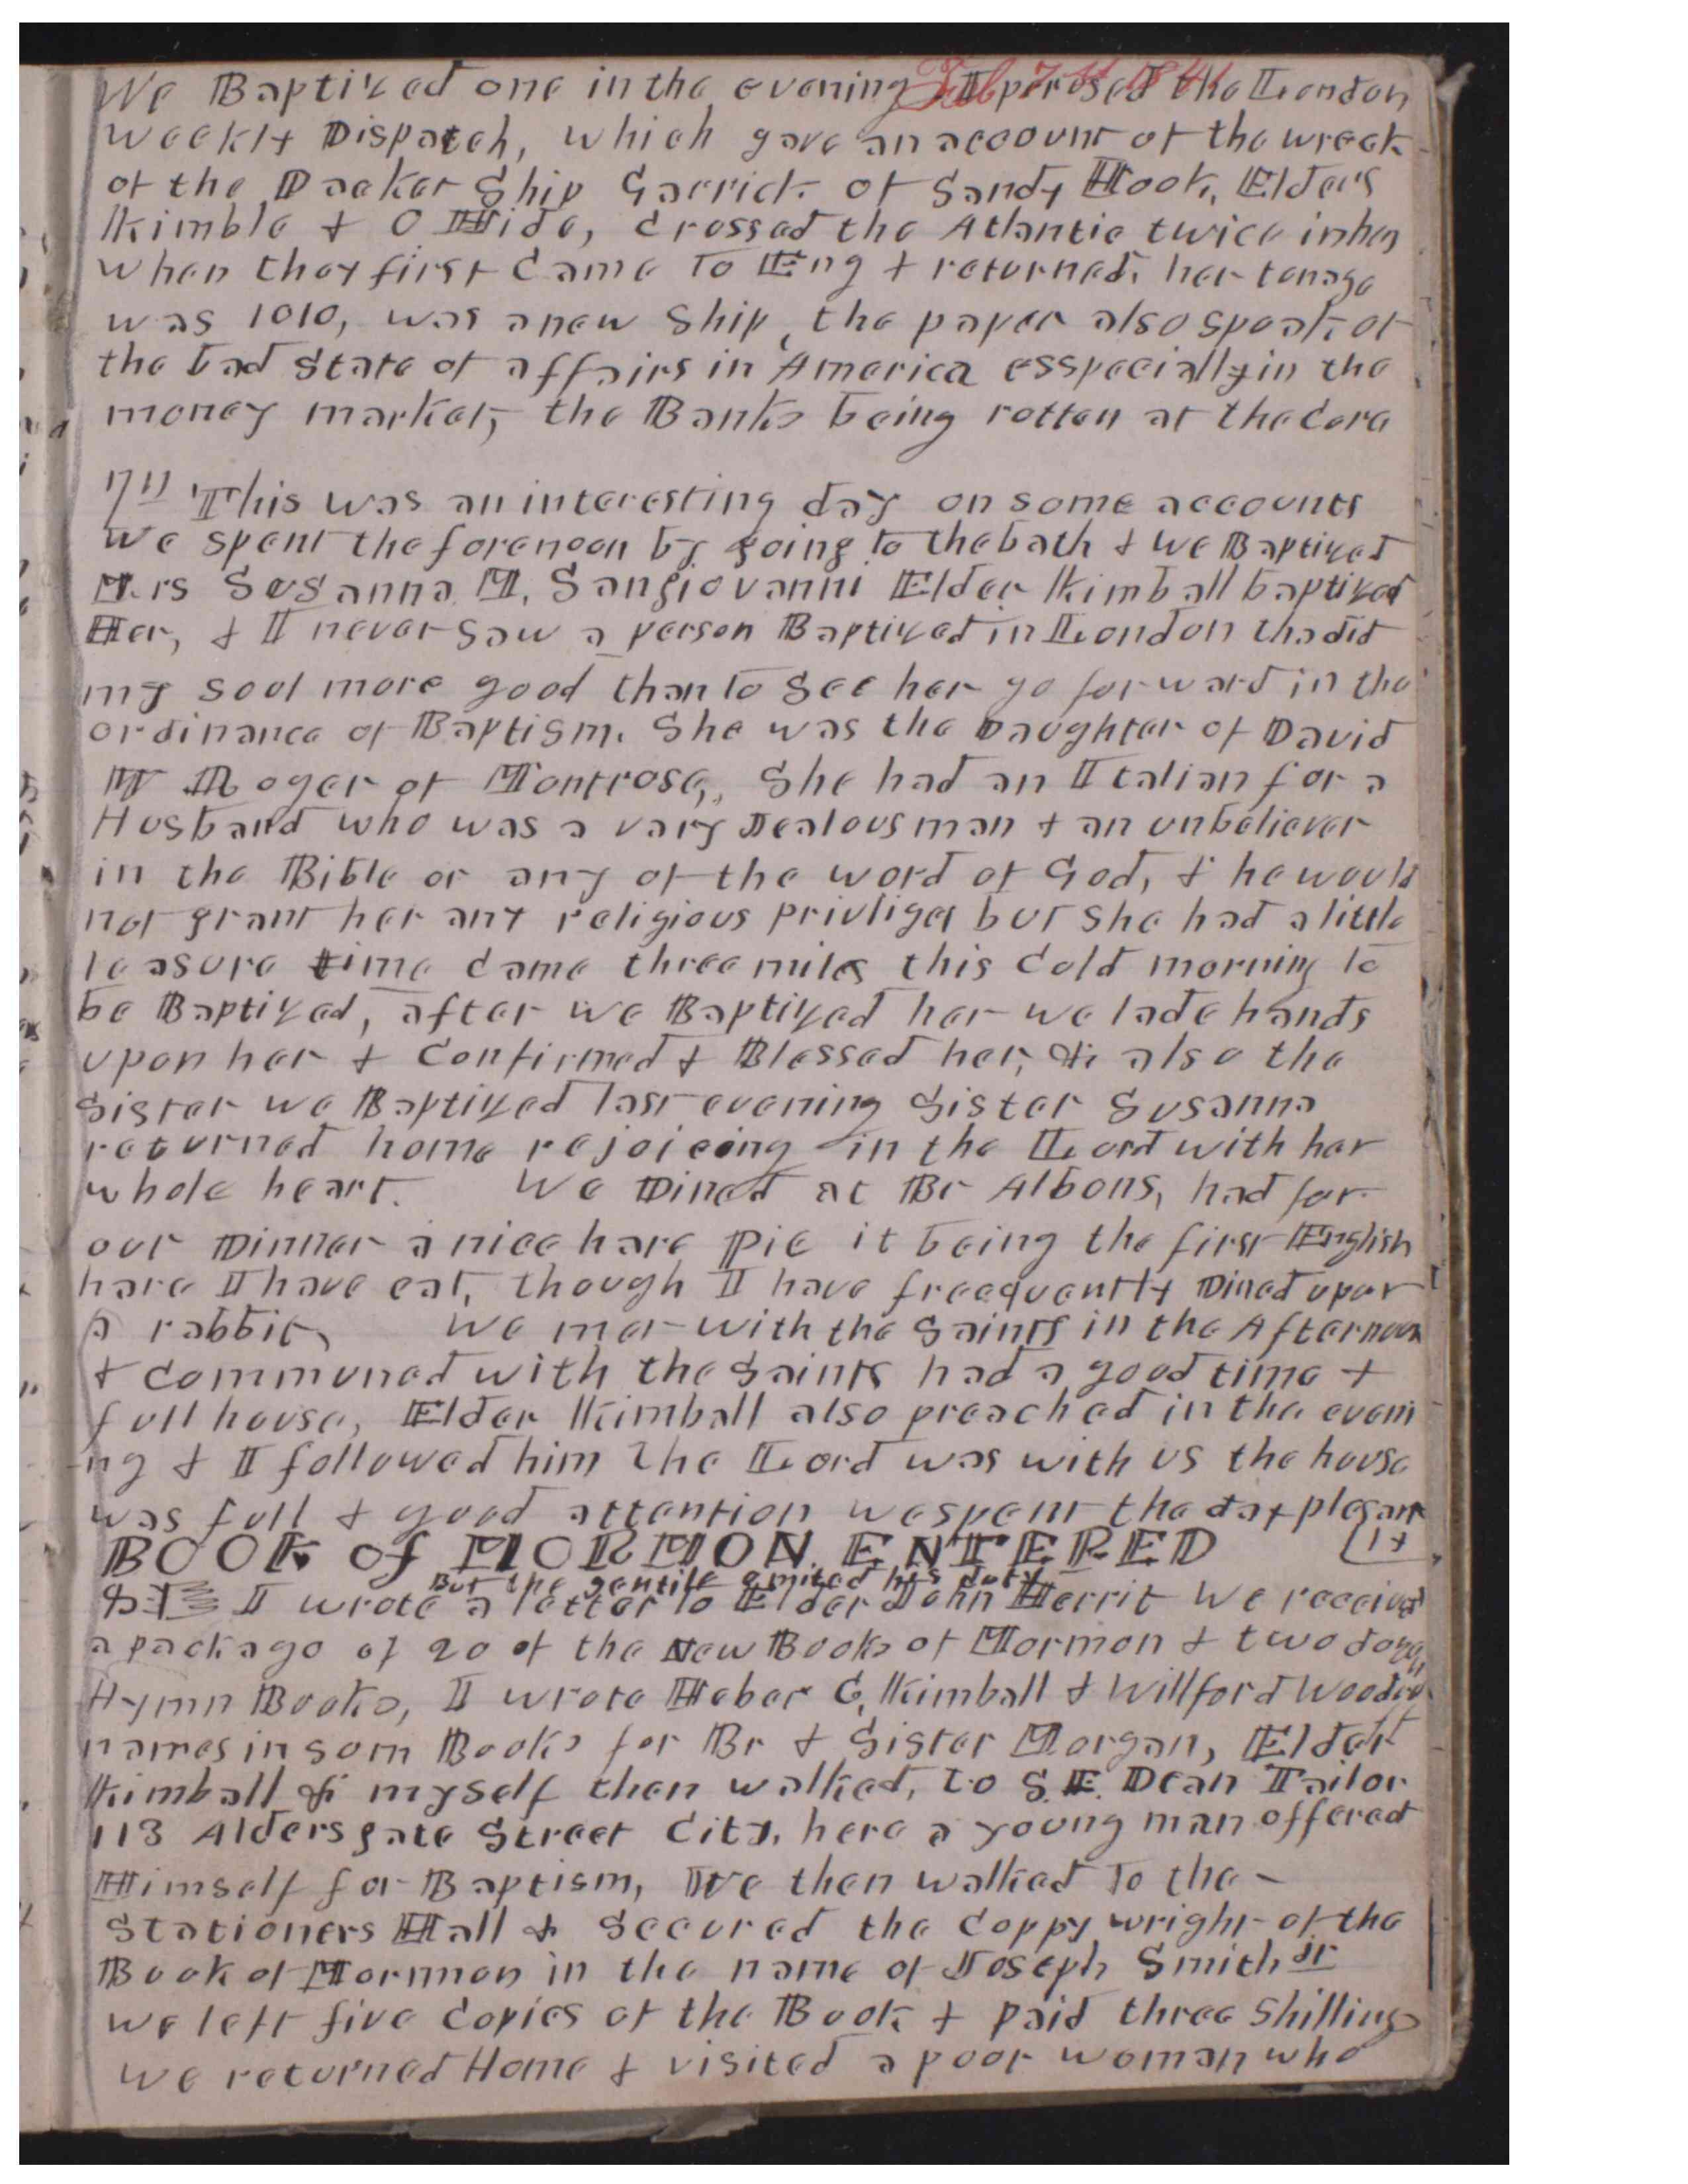 We Baptized one in the evening I perused the London
Feb 7th 1841
weekly Dispatch, which gave an account of the wreck
of the Packet Ship Garrick of Sandy Hook, Elders
Kimble & O Hide, crossed the Atlantic twice in her
when they first came to Eng & returned, her tonage
was 1010, was a new ship, the paper also speak of
the bad state of affairs in America esspecially in the
money market, the Banks being rotten at the core
7th This was an interesting day on some accounts
We spent the forenoon by going to the bath & we Baptized
Mrs Susanna M. Sangiovanni Elder Kimball baptized
Her, & I never saw a person Baptized in London tha did
my soul more good than to see her go forward in the
ordinance of Baptism. She was the Daughter of David
W Roger of Montrose, She had an Italian for a
Husband who was a vary Jealous man & an unbeliever
in the Bible or any of the word of God, & he would
not grant her any religious privliges but she had a little
leasure time came three miles this cold morning to
be Baptized, after we Baptized her we lade hands
upon her & confirmed & Blessed her, & also the
Sister we Baptized last evening Sister Susanna
returned home rejoiceing in the Lord with her
whole heart. We Dined at Br Albons, had for
our Dinner a nice hare pie it being the first English
hare I have eat, though I have freequently Dined upon
a rabbit, We met with the Saints in the Afternoon
& communed with the Saints had a good time &
full house, Elder Kimball also preached in the eveni
ng & I followed him The Lord was with us the house
was full & good attention we spent the day plesant
ly
BOOK of MORMON ENTERED
But the gentile omited his duty
8th I wrote a letter to Elder John Herrit We received
a package of 20 of the New Books of Mormon & two dozen
Hymn Books, I wrote Heber C, Kimball & Willford Woodruff
names in som Books for Br & Sister Morgan, Elder
Kimball & myself then walked, to S. E. Dean Tailor
113 Aldersgate Street City, here a young man offered
Himself for Baptism, We then walked to the
Stationers Hall & secured the coppy wright of the
Book of Mormon in the name of Joseph Smith jr
we left five copies of the Book & paid three shillings
we returned Home & visited a poor woman who